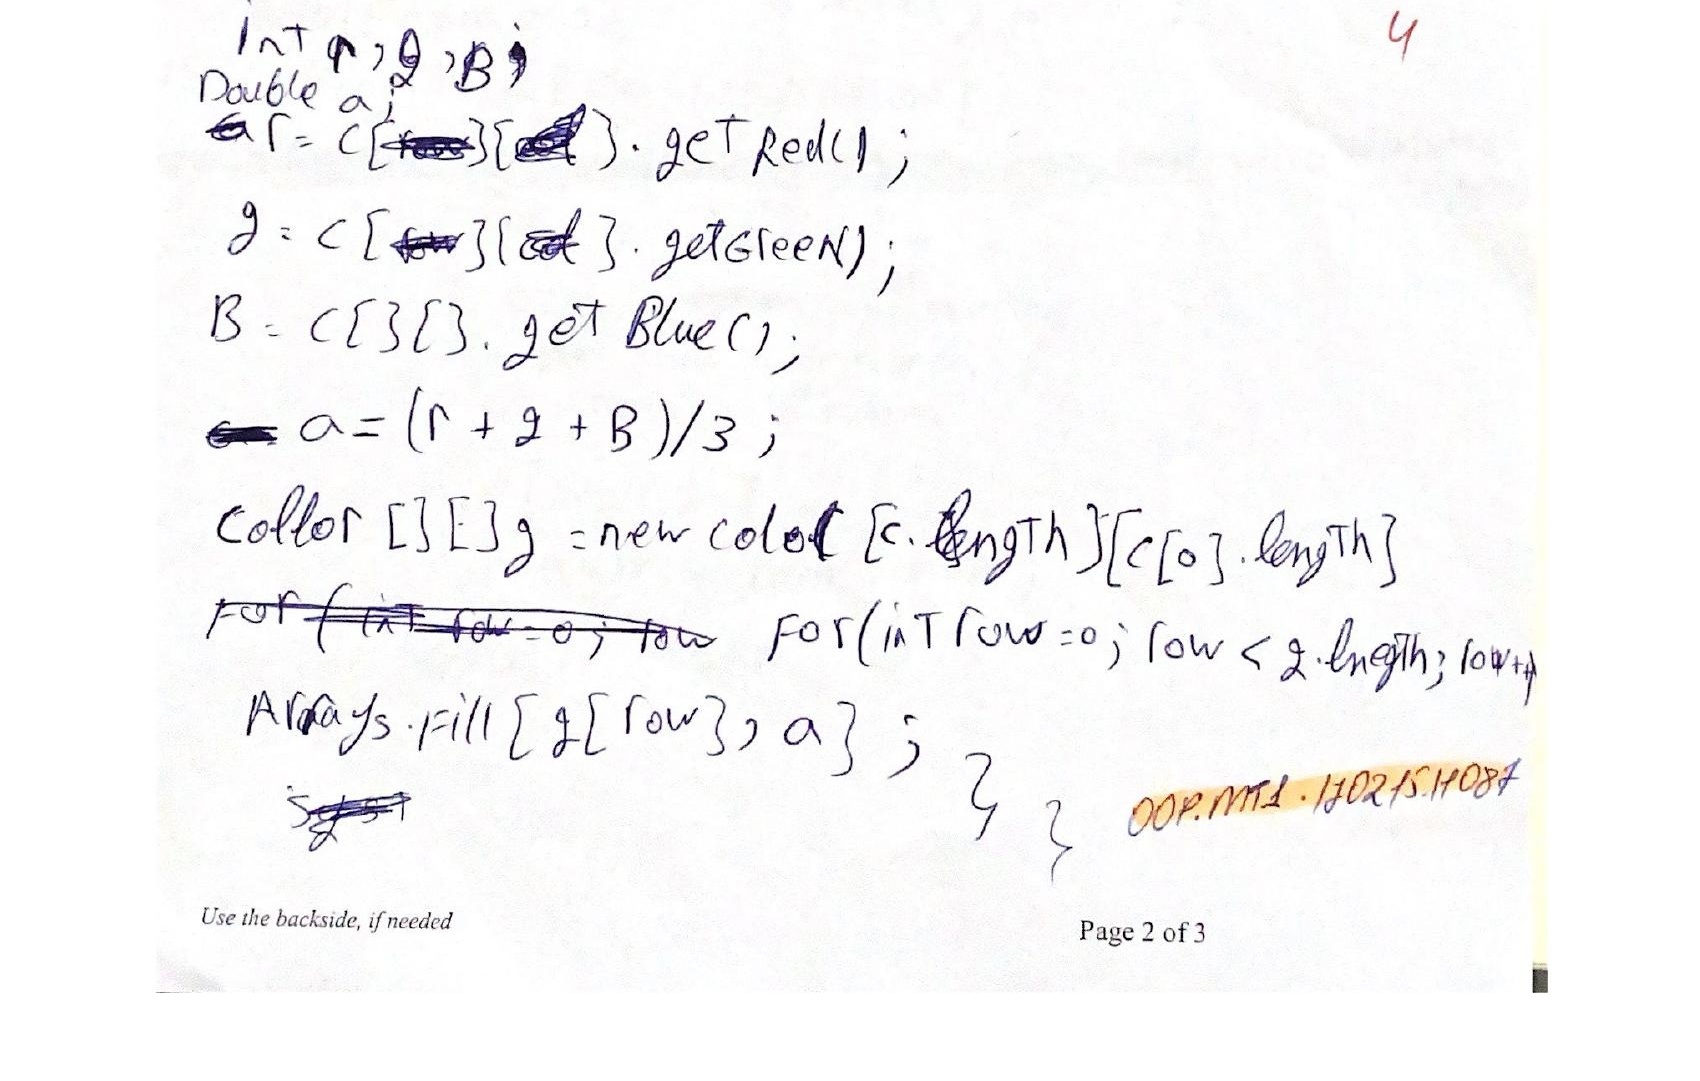 4
Int r, g, B;
Double a;
r = c[][].getRed();
g = c[][].getGreeN);
B = c[][].getBlue();
a = (r + g + B)/3;
Collor [][]g = new color [c.length][c[0].length]
For (int row = 0; row For(int row = 0; row < g.lnegth; row++)
Arrays.Fill[g[row], a];
} }
OOP.MT1.170215.11087
Use the backside, if needed
Page 2 of 3